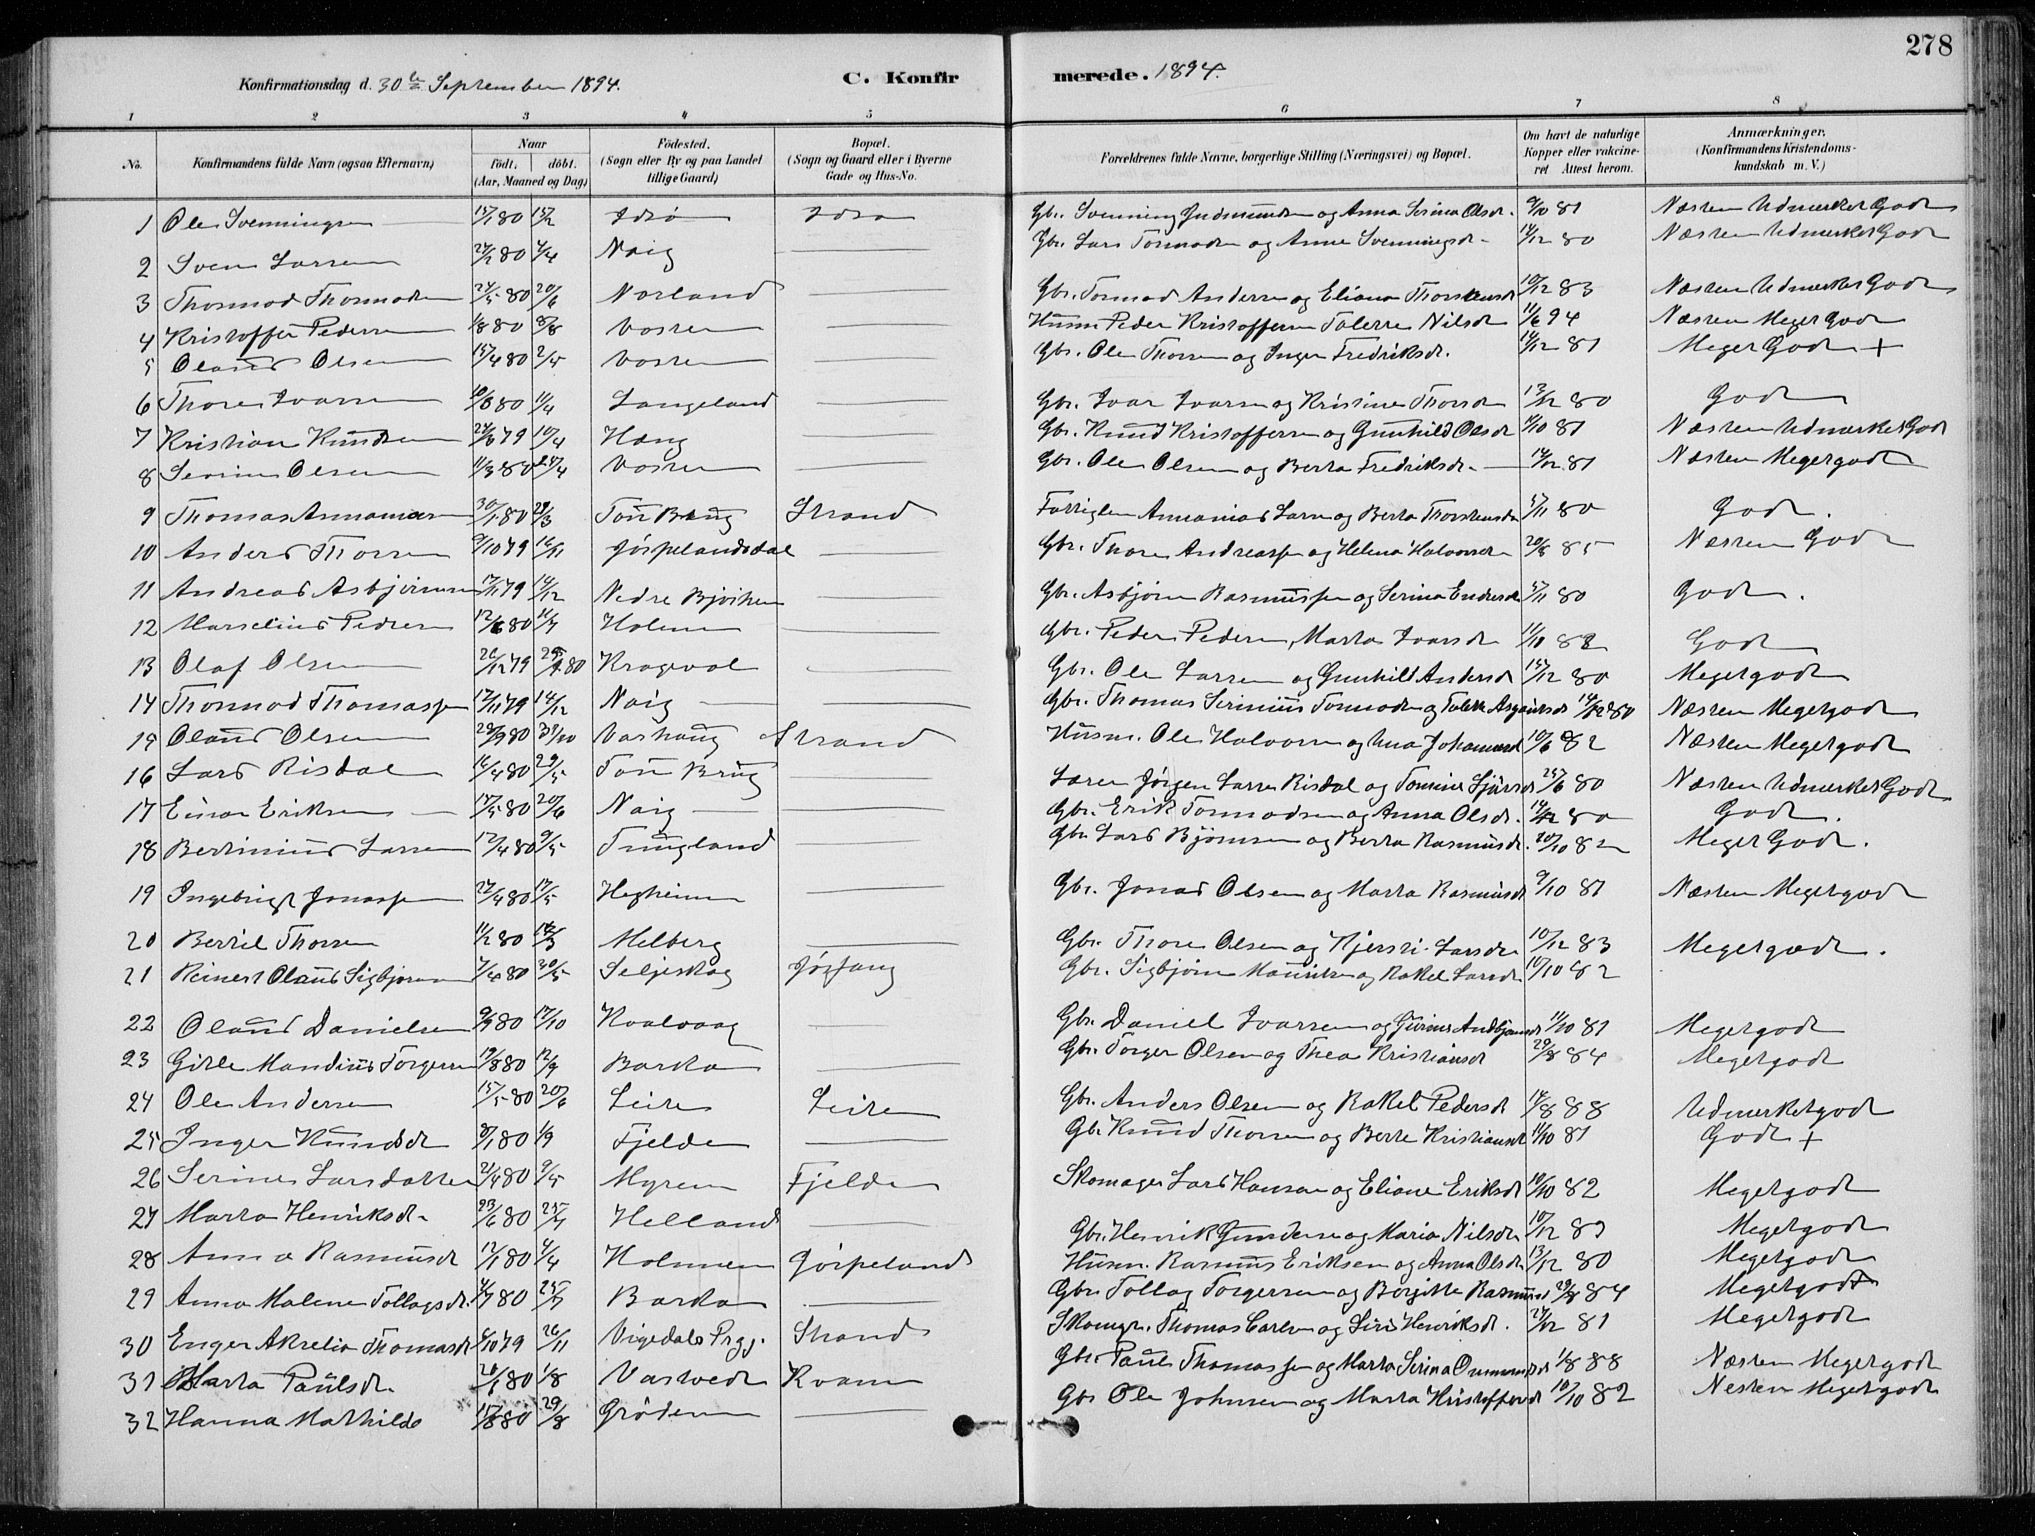 278
Konfirmationsdag d. 30te September 1894. C. Konfirmerede. 1894.
1 2 3 4 5 6 7 8
No. Konfirmandens fulde Navn (ogsaa Efternavn) Naar födt, döbt. (Aar, Maaned og Dag) Födested. (Sogn eller By og paa Landet tillige Gaard) Bopæl. (Sogn og Gaard eller i Byerne Gade og Hus-No. Forældrenes fulde Navne, borgerlige Stilling (Næringsvei) og Bopæl. Om havt de naturlige Kopper eller vakcineret Attest herom. Anmærkninger. (Konfirmandens Kristendomskundskab m. V.)
1 Ole Svenningsen 15/1 80 15/2 Idsö Idsö Gbr. Svenning Gudmundsen og Anna Serina Olsdr. 9/10 81 Næsten Udmerket Godt
2 Sven Larsen 24/2 80 4/4 Naig Gbr. Lars Tormodsen og Anne Svenningsdr. 14/12 80 Næsten Udmerket Godt
3 Thormod Thormodsen 24/5 80 20/6 Norland Gbr. Tormod Andersen og Eliana Thorstensdr 10/12 83 Næsten Udmerket Godt
4 Kristoffer Pedersen 1/8 80 8/8 Vostren Husm Peder Kristoffersen Tolerre Nilsdr 11/6 94 Næsten Meget Godt
5 Olaus Olsen 15/4 80 2/5 Vostren Gbr. Ole Thorsen og Inger Fredriksdr. 14/12 81 Meget Godt +
6 Thore Ivarsen 10/3 80 11/4 Langeland Gbr. Ivar Ivarsen og Kristine Thorsdr 13/12 80 Godt
7 Kristian Knudsen 10/4 Haug Gbr. Knud Kristoffersen og Gunhild Olsdr 11/10 81 Næsten Udmerket Godt
8 Severin Olsen 11/3 80 25/4 Vostren Gbr. Ole Olsen og Berta Fredriksdr. 14/12 81 Næsten Meget godt
9 Thomas Annaniasen 30/1 80 29/3 Tou Brug Strand Fattiglem Annanias Larsen og Berta Thorstensdr 15/11 80 Godt.
10 Anders Thorsen 9/10 79 16/11 Jörpelandsdal Gbr. Thore Andreassen og Helena Halvorsdr 20/8 85 Næsten Godt
11 Andreas Asbjörnsen 17/11 79 14/12 Nedre Bjöiheim Gbr. Asbjörn Rasmussen og Serina Endresdr 15/11 80 Godt.
12 Marselius Pedersen 12/6 80 11/7 Holmen Gbr. Peder Pedersen, Marta Ivarsdr 11/10 82 Godt
13 Olaf Olsen 26/12 79 80 Kragevol Gbr. Ole Larsen og Gunhild Andersdr 15/12 80 Meget godt
14 Thormod Thomassen 17/11 79 14/12 Naig Gbr. Thomas Serinius Tormodsen og 14/12 80 Næsten Meget godt
15 Olaus Olsen 28/9 80 31/10 Varhaug Strand Husm. Ole Halvorsen og Ana Johannesdr 10/6 82 Næsten Meget godt
16 Lars Risdal 16/4 80 29/5 Tou Brug Lærer Jörgen Larsen Risdal og Tomine Sjursdr 25/6 80 Næsten Udmerket Godt
17 Einar Eriksen 17/5 80 20/6 Naig Gbr. Erik Tormodsen og Anna Olsdr. 14/12 80 Godt.
18 Bertinius Larsen 17/4 80 9/5 Tungland Gbr. Lars Björnsen og Berta Rasmusdr. 20/10 82 Meget Godt.
19 Ingebrigt Jonassen 27/4 80 17/5 Hegheim Gbr. Jonas Olsen og Marta Rasmusdr 9/10 81 Næsten Meget godt
20 Bertil Thorsen 11/2 80 Melberg Gbr. Thore Olsen og Kjersti Larsdr 10/12 83 Meget godt.
21 Reinert Olaus Sigbjörnsen 7/4 80 30/5 Seljeskog Jössang Gbr. Sigbjörn Mauritsen og Rakel Larsdr 10/10 82
22 Olaus Danielsen 9/9 80 17/10 Kvalvaag Gbr. Daniel Ivarsen og 11/10 81 Meget godt
23 Gitle Mandius Torgersen 19/8 80 12/9 Barka Gbr. Torger Olsen og Thea Kristiansdr 29/8 84 Meget godt
24 Ole Andersen 15/5 80 20/6 Leite Leite Gbr. Anders Olsen og Rakel Pedersdr 14/8 88 Udmerket godt
25 Inger Knudsdr 80 1/9 Fjelde Gbr. Knud Thorsen og Berte Kristiansdr 11/10 81 Godt +
26 Serine Larsdatter 21/4 80 9/5 Myren Fjelde Skomager Lars Hansen og Eliane Eriksdr 10/10 82 Meget godt
27 Marta Henriksdr. 23/6 80 25/7 Helland Gbr. Henrik Gundersen og Maria Nilsdr 10/12 81 Meget godt
28 Anna Rasmusdr 12/1 80 4/4 Holmen Jörpeland Husm. Rasmus Eriksen og Anna Olsdr 13/12 80 Meget godt
29 Anna Malene Tollagsdr. 4/7 80 25/7 Barka Gbr. Tollag Torgersen og Bergitte Rasmusdr 29/8 84 Meget godt
30 Enger Akrelia Thomasdr 79 26/11 Vigedals Prgj. Strand Skomgr. Thomas Carlsen og Siri Henriksdr. 24/12 81 Meget godt
31 Marta Paulsdr. 80 1/8 Vasvedt Kvam Gbr. Paul Thomassen og Marta Serina 1/8 88 Næsten Meget godt
32 Hanna Mathilde 80 29/8 Gröten Gbr Ole Johnsen og Marta Kristoffersdr 10/10 82 Nesten Meget godt